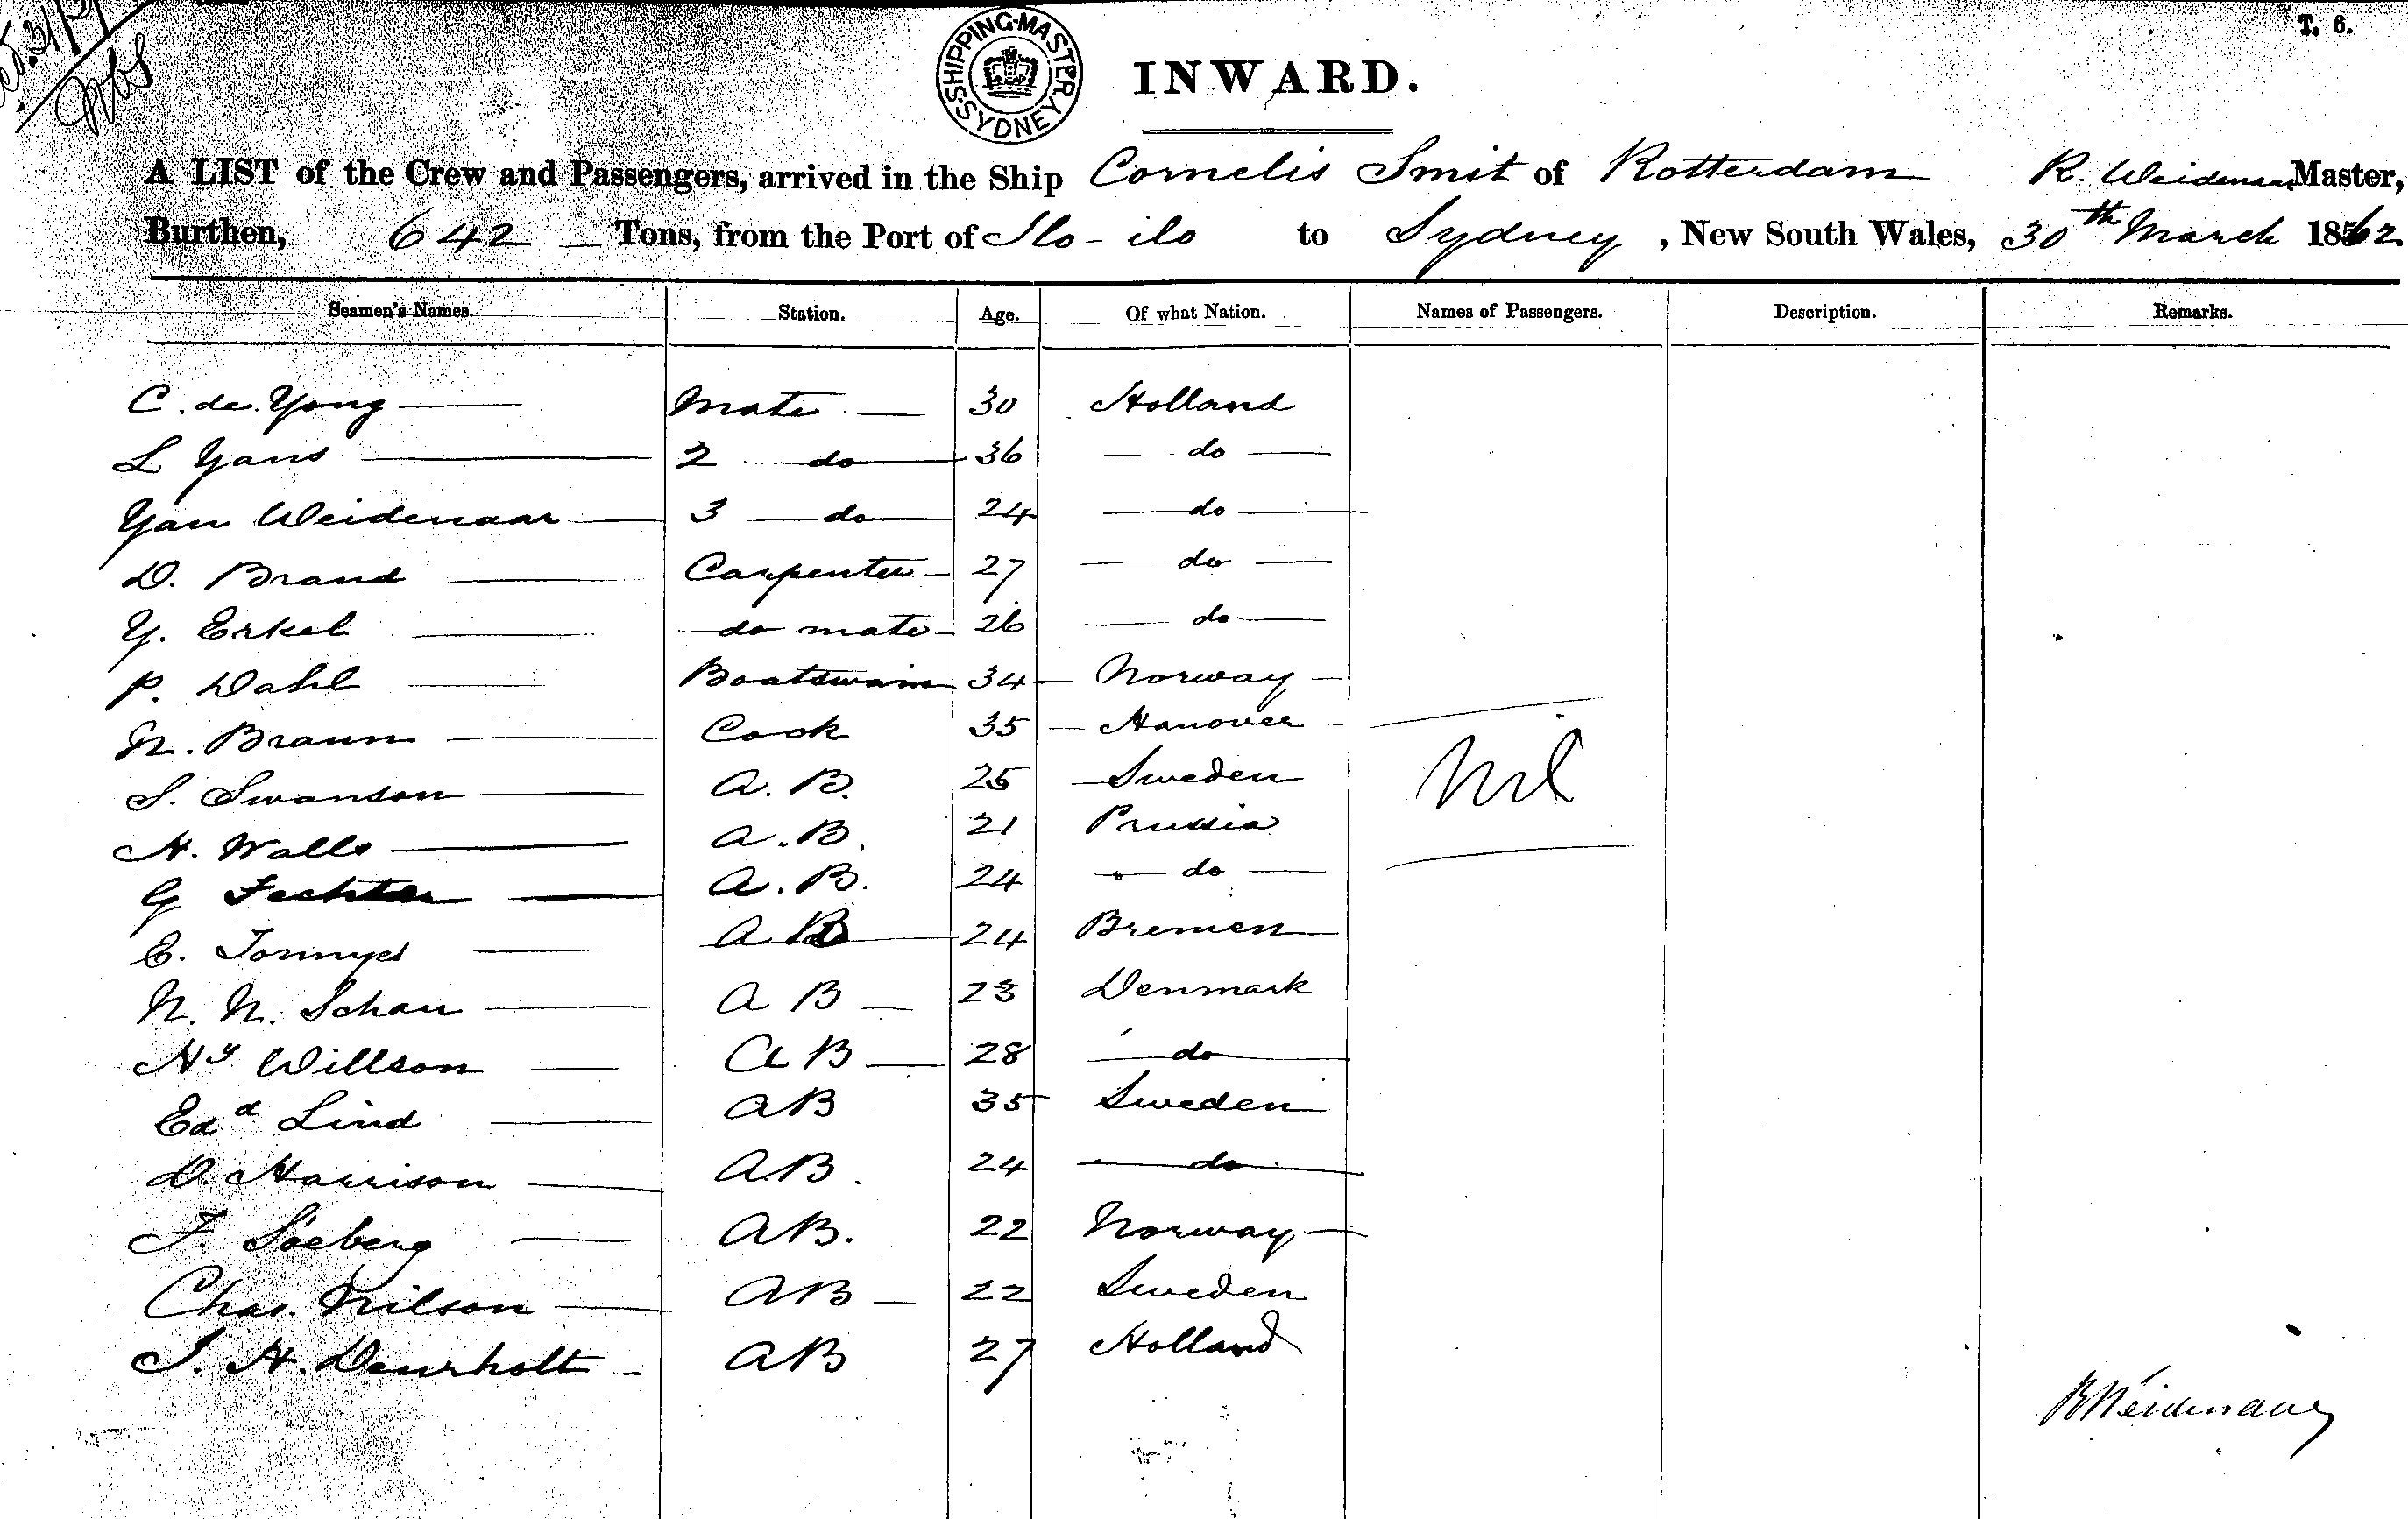 T. 6.
SHIPPING·MASTER·SYDNEY·
INWARD.
A LIST of the Crew and Passengers, arrived in the Ship Cornelis Smit of Rotterdam R. Weidenaar Master,
Burthen, 642 Tons, from the Port of Ilo-ilo to Sydney, New South Wales, 30th March 1862
Seamen's Names. Station. Age. Of what Nation. Names of Passengers. Description. Remarks.
C. de Yong Mate 30 Holland
L Yans 2 do 36 do
Yan Weidenaar 3 do 24 do
D. Brand Carpenter 27 do
Y. Erkel do mate 26 do
P. Dahl Boatswain 34 Norway
N. Braun Cook 35 Hanover
S. Swanson A. B. 25 Sweden
Nil
H. Walls A. B. 21 Prussia
G Fechter A. B. 24 do
E. Tonnyes A B 24 Bremen
N. N. Schau A B 23 Denmark
Hy Willson A B 28 do
Edd Lind AB 35 Sweden
D. Harrison AB. 24 do
F. Söeberg AB. 22 Norway
Chas. Nilson AB 22 Sweden
J. H. Deurholt AB 27 Holland
R Weidenaar